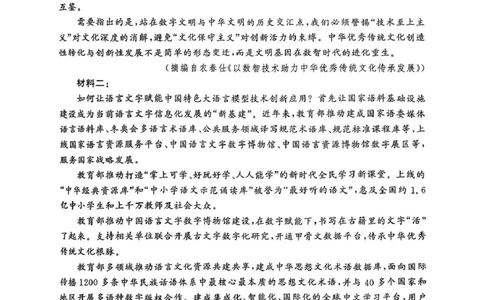 互鉴。
需要指出的是,站在数字文明与中华文明的历史交汇点,我们必须警惕“技术至上主
义”对文化深度的消解,避免“文化保守主义”对创新活力的束缚。中华优秀传统文化创造
性转化与创新性发展不是简单的形态变迁,而是文明基因在数智时代的进化重生。
(摘编自农春仕《以数智技术助力中华优秀传统文化传承发展》)
材料二:
如何让语言文字赋能中国特色大语言模型技术创新应用?首先让国家语料基础设施
建设成为当前语言文字信息化发展的“新基建”。近年来,教育部推动建成国家语委媒体
语言语料库、冬奥会多语言术语库、公共服务领域译写规范术语库、规范标准课程库等,上
线国家语言资源服务平台、中国语言文字数字博物馆、中国语言资源博物馆数字展区等,
服务国家战略发展。
教育部推动打造“掌上可学、好玩好学、人人能学”的新时代全民学习新课堂。上线的
“中华经典资源库”和“中小学语文示范诵读库”被誉为“最好听的语文”,惠及全国约 1.6
亿中小学生和上千万教师及社会大众。
教育部推动中国语言文字数字博物馆建设,在数字赋能下,书写在古籍里的文字“活”
了起来。支持相关单位联合开展古文字数字化研究,开通甲骨文数据平台,传承中华优秀
传统文化根脉。
教育部多领域推动语言文化资源共建共享,建成中华思想文化术语数据库,面向国际
传播 1200 多条中华民族话语体系中最核心最本质的思想文化术语,并与 40 多个国家和
地区开展多语种数字版权合作。建成集成化、智能化、国际化的全球中文学习平台,用户